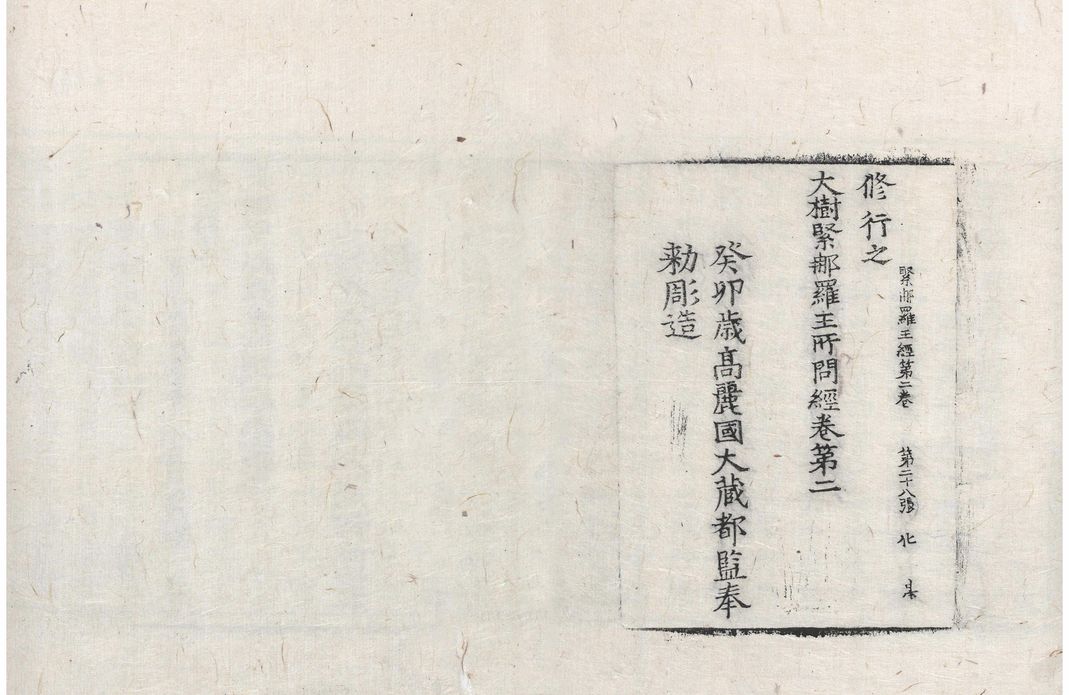 緊那羅王經第二卷 第二十八張 化
修行之
大樹緊那羅王所問經卷第二
癸卯歳高麗國大藏都監奉
勅彫造